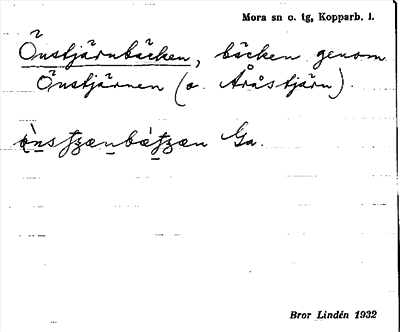 Mora sn o. tg, Kopparb. l.
Önstjärnbäcken, bäcken genom
Önstjärnen (o. Åråstjärn).
Ga.
Bror Lindén 1932